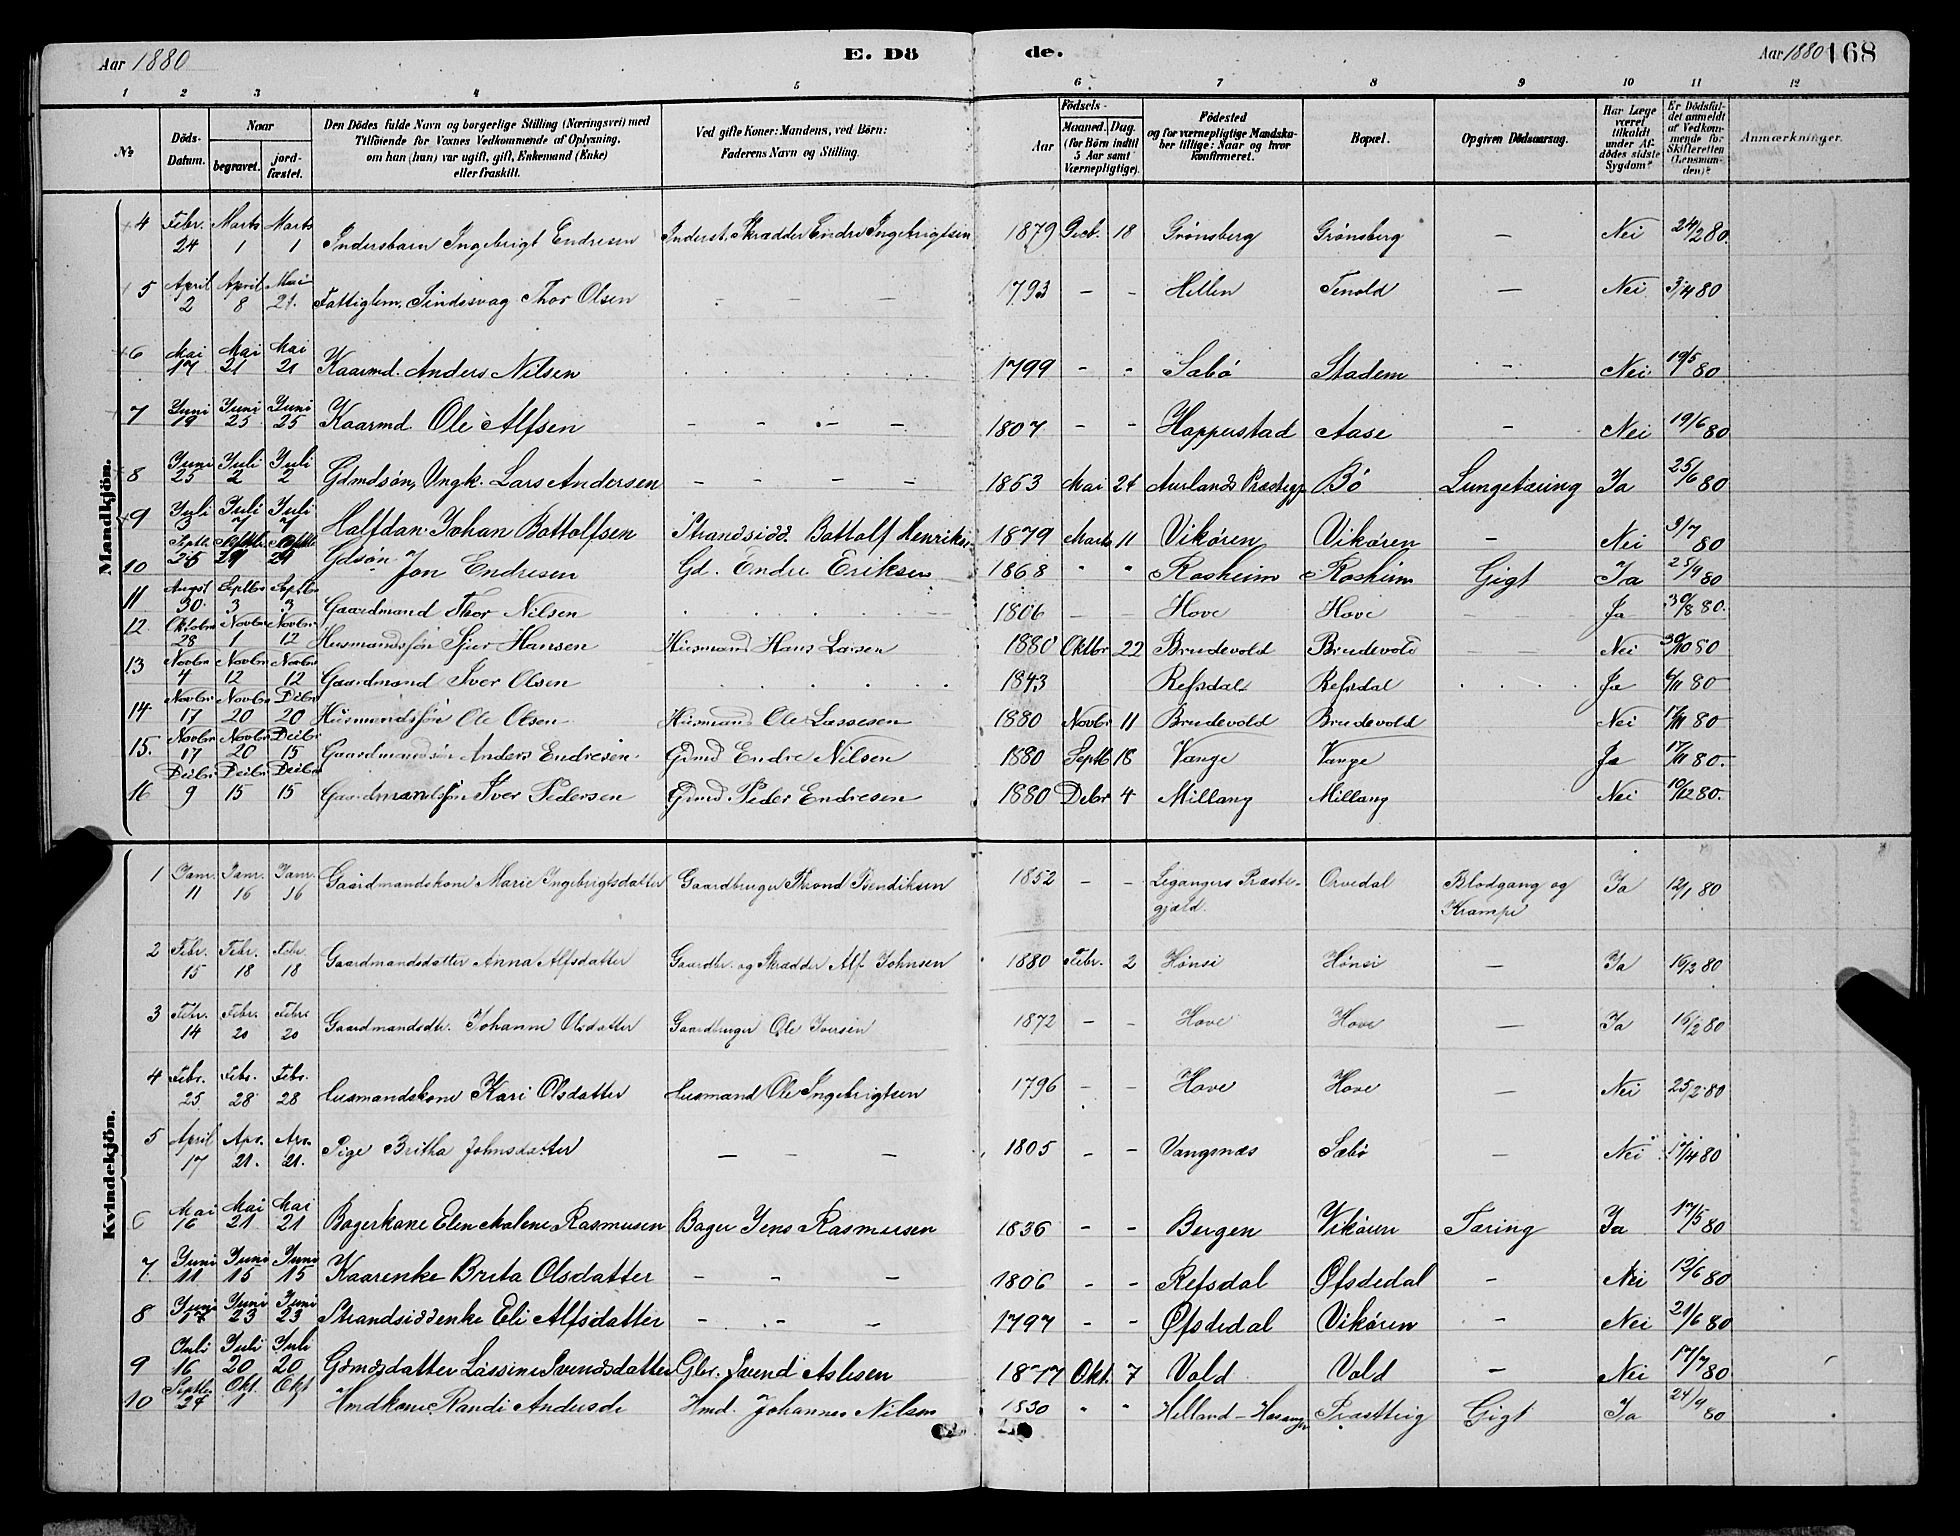 Aar 1880 E. Dö de. Aar 1880 168
1 2 3 4 5 6 7 8 9 10 11 12
№ Döds-Datum. Naar begravet. jord-fæstet. Den Dödes fulde Navn og borgerlige Stilling (Næringsvei) med Tilföiende for Voxnes Vedkommende af Oplysning, om han (hun) var ugift, gift, Enkemand (Enke) eller fraskilt. Ved gifte Koner: Mandens, ved Börn: Faderens Navn og Stilling. Födsels- Aar Maaned. Dag. (for Börn indtil 5 Aar samt Værnepligtige). Födested og for værnepligtige Mandskaber tillige: Naar og hvor konfirmeret. Bopæl. Opgiven Dödsaarsag. Har Læge været tilkaldt under Afdödes sidste Sygdom? Er Dödsfaldet anmeldt af Vedkommende for Skifteretten (Lensmanden)? Anmærkninger.
Mandkjön.
4 Febr. 24 Marts 1 Marts 1 Indersbarn Ingebrigt Endresen Inderst. Skrædder Endre Ingebrigtsen 1879 Decb. 18 Grønsberg Grønsberg — Nei 24/2 80.
5 April 2 April 8 Mai 21. Fattiglem. Sindssvag Thor Olsen - - - 1793 - - Hillen Tenold — Nei 3/4 80
6 Mai 17 Mai 21 Mai 21 Kaarmd. Anders Nilsen 1799 - - Sæbø Stadem - Nei 19/5 80
7 Juni 19 Juni 25 Juni 25 Kaarmd Ole Alfsen - - - - 1807 - - Hopperstad Aase - Nei 19/6 80
8 Juni 25 Juli 2 Juli 2 Gdmdsøn, Ungk. Lars Andersen - - - - 1863 Mai 24 Aurlands Præstegj. Bö Lungetæring Ja 25/6 80
9 Juli 3 Juli 7 Juli 7 Halfdan Johan Bottolfsen Strandsidd. Bottolf Henriks. 1879 Marts 11 Vikøren Vikøren - Nei 3/7 80
10 Septbr. 25 Septbr 29 Septbr 29 Gdsøn Jon Endresen Gd. Endre Eriksen 1868 " " Rosheim Rosheim Gigt Ja 25/9 80
11 August 30. Septbr 3 Septbr 3 Gaardmand Thor Nilsen 1806 - - Hove Hove - - Ja 30/8 80.
12. Oktobr 28 Novbr 1 Novbr 12 Husmandssøn Sjur Hansen Husmand Hans Larsen 1880 Oktbr 22 Brudevold Brudevold - - Nei 30/10 80
13 Novbr 4 Novbr 12 Novbr 12 Gaardmand Iver Olsen 1843 Refsdal Refsdal Ja 6/11 80
14. Novbr 17 Novbr 20 Debr 20 Husmandssøn Ole Olsen Husmand Ole Lassesen 1880 Novbr 11 Brudevold Brudevold Nei 17/11 80
15. Novbr 17 Novbr 20 Debr 15 Gaardmandssøn Anders Endresen Gdmd Endre Nilsen 1880 Septb 18 Vange Vange Ja 17/11 80.
16 Debr 9 Debr 15 Debr 15 Gaardmandssøn Iver Pedersen Gdmd. Peder Endresen 1880 Debr 4 Millang Millang Nei 10/12 80.
Kvindekjön.
1 Janr. 11 Janr. 16 Janr. 16 Gaardmandskone Marie Ingebrigtsdatter Gaardbruger Thrond Bendiksen 1852 - - Legangers Præste- Orvedal Blodgang og Ja 12/1 80
gjæld. Krampe
2 Febr. 15 Febr. 18 Febr. 18 Gaardmandsdatter Anna Alfsdatter Gaardbr. og Skrædder Alf Johnsen 1880 Febr. 2 Hønsi Hønsi — Ja 16/2 80
3 Febr. 14 Febr. 20 Febr 20 Gaardmandsdtr. Johanne Olsdatter Gaardbruger Ole Iversen 1872 - - Hove Hove — Ja 16/2 80
4 Febr. 25 Febr. 28 Febr. 28 Husmandskone Kari Olsdatter Husmand Ole Ingebrigtsen 1796 - - Hove Hove — Nei 25/2 80
5 April 17 Apr. 21. Apr. 21. Pige Britha Johnsdatter — - - 1805 - - Vangsnæs Sæbø — Nei 17/4 80
6 Mai 16 Mai 21 Mai 21 Bagerkone Elen Malene Rasmusen Bager Jens Rasmusen 1836 - - Bergen Vikøren Tæring Ja 17/5 80
7. Juni 11 Juni 15 Juni 15 Kaarenke Brita Olsdatter - - - 1806 - - Refsdal Øfsdedal - Nei 12/6 80
8 Juni 17 Juni 23 Juni 23 Strandsiddenke Eli Alfsdatter - - - 1797 - - Øfsdedal Vikøren - Nei 21/6 80
9 Juli 16 Juli 20 Juli 20 Gdmdsdatter Lassine Svendsdatter Gbr. Svend Aslesen 1877 Okt. 7 Vold Vold - Nei 17/7 80
10 Septbr 24 Okt. 1 Okt 1 Hmdkone Randi Andersdr Hmd. Johannes Nilsen 1830 " " Helland - Præstteig Gigt Ja 24/9 80